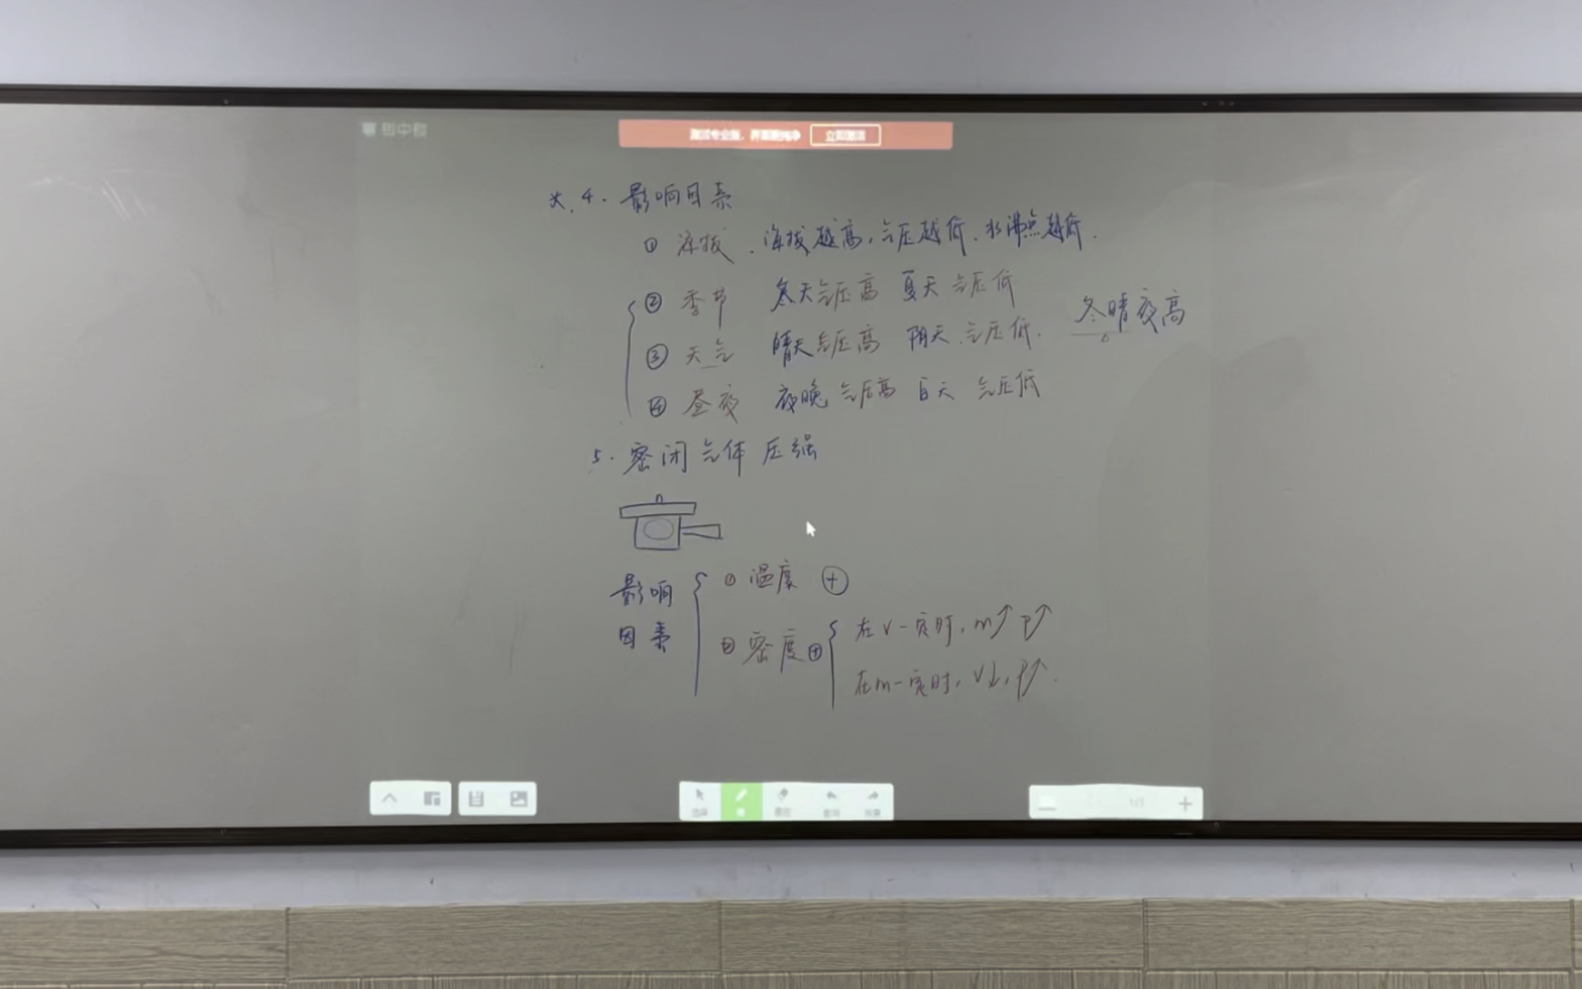 ※.4. 影响因素
① 海拔. 海拔越高,气压越低.水沸点越低.
② 季节 冬天气压高 夏天气压低
③ 天气 晴天气压高 阴天.气压低.
冬晴夜高
④ 昼夜 夜晚气压高 白天 气压低
5. 密闭气体压强
影响因素
① 温度 ⊕
② 密度 ⊕
在V一定时,m↑ P↑
在m一定时,V↓,P↑.
立即激活
1/1